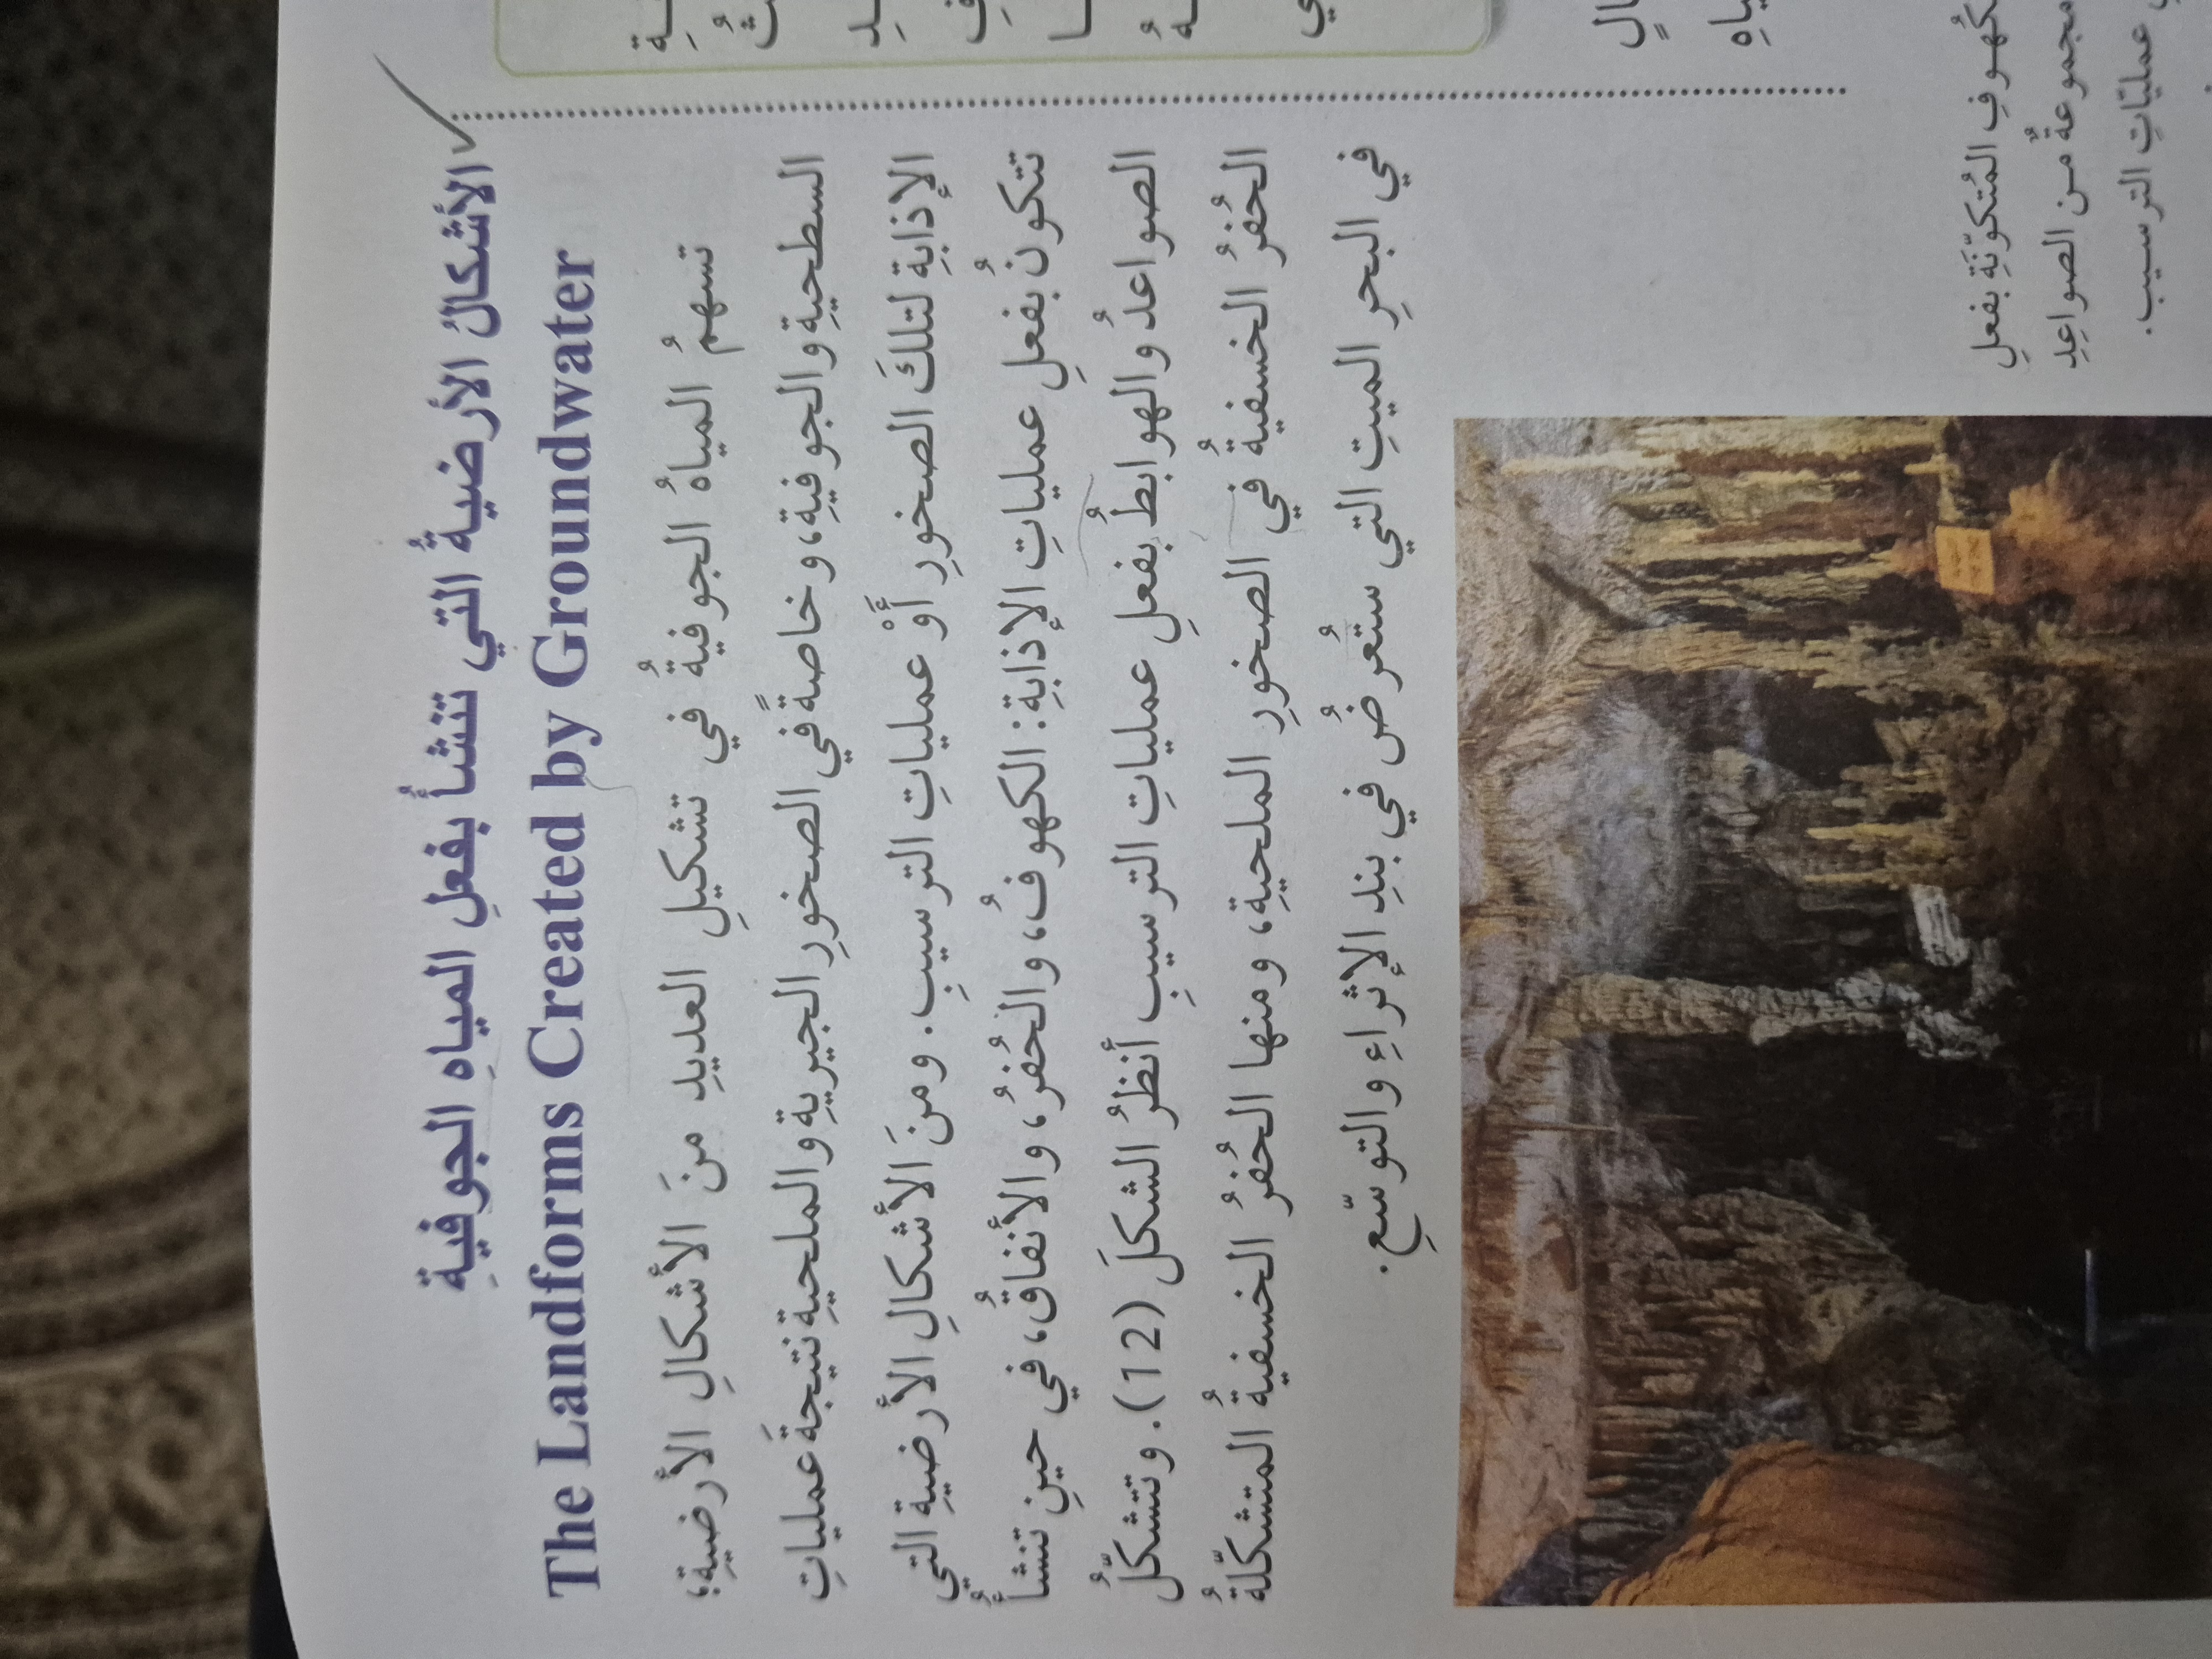 الأشكالُ الأرضيةُ التي تنشأُ بفعلِ المياهِ الجوفيةِ
The Landforms Created by Groundwater
تسهمُ المياهُ الجوفيةُ في تشكيلِ العديدِ منَ الأشكالِ الأرضيةِ؛
السطحيةِ والجوفيةِ، وخاصةً في الصخورِ الجيريةِ والملحيةِ نتيجةَ عملياتِ
الإذابةِ لتلكَ الصخورِ أَوْ عملياتِ الترسيبِ. ومنَ الأشكالِ الأرضيةِ التي
تتكونُ بفعلِ عملياتِ الإذابةِ: الكهوفُ، والحُفرُ، والأنفاقُ، في حينِ تنشأُ
الصواعدُ والهوابطُ بفعلِ عملياتِ الترسيبِ أنظرُ الشكلَ (12). وتتشكّلُ
الحُفرُ الخسفيةُ في الصخورِ الملحيةِ، ومنها الحُفرُ الخسفيةُ المتشكّلةُ
في البحرِ الميتِ التي ستُعرضُ في بندِ الإثراءِ والتوسّعِ.
المُتكوّنَةِ بفعلِ
مجموعةٌ من الصواعِدِ
عمليّاتِ الترسيب.